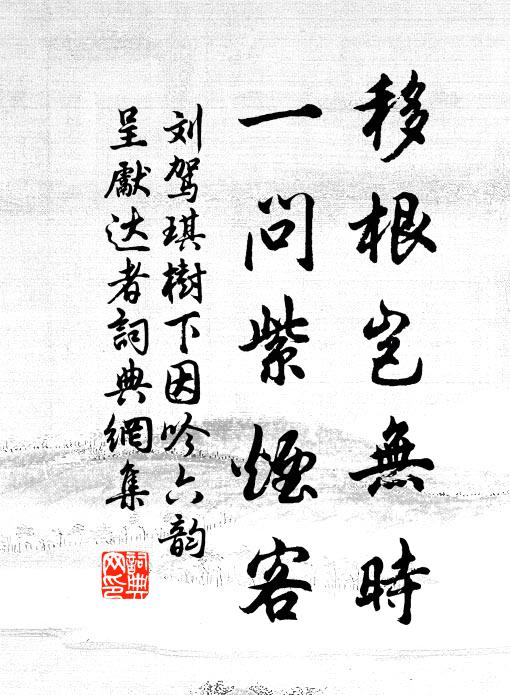 移根岂無時
一問紫煙客
刘驾琪樹下因吟六韵
呈獻达者詞典網集
詞典网印